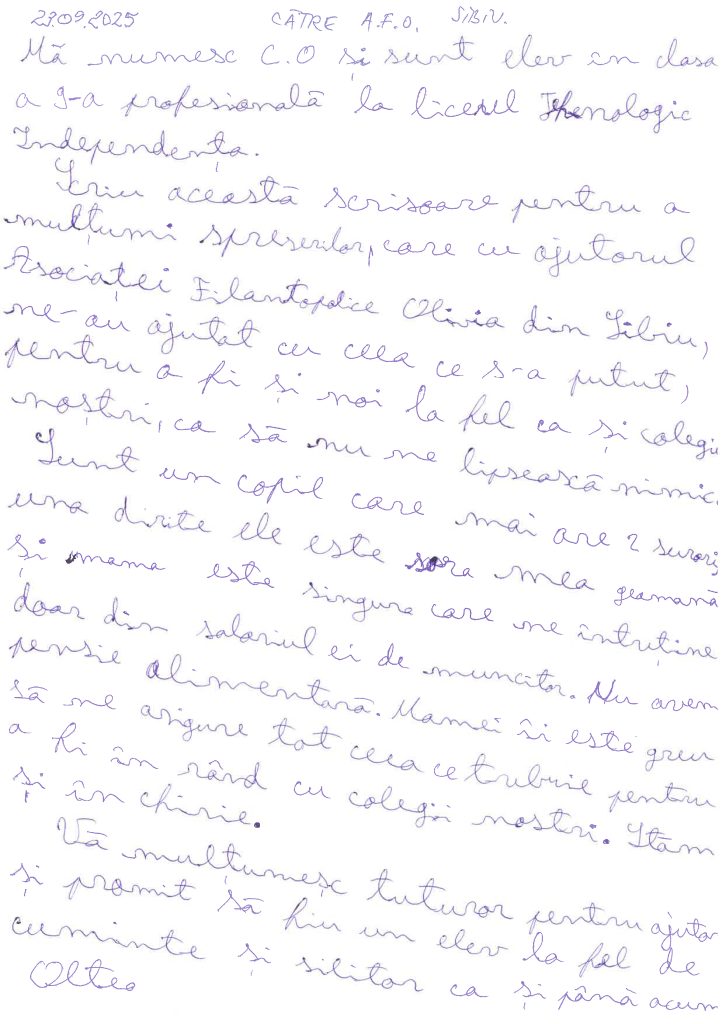 23.09.2025 CĂTRE A.F.O. SIBIU.
Mă numesc C.O și sunt elev în clasa
a 9-a profesională la liceul Thenologic
Independența.
Scriu această scrisoare pentru a
mulțumi spreserilor, care cu ajutorul
Asociației Filantopolice Olivia din Sibiu,
ne-au ajutat cu ceea ce s-a putut,
pentru a fi și noi la fel ca și colegii
noștri, ca să nu ne lipsească nimic.
Sunt un copil care mai are 2 surori,
una dirite ele este sora mea geamană
și mama este singura care ne întrține
doar din salariul ei de muncitor. Nu avem
pensie alimentară. Mamei îi este greu
să ne asigure tot ceea ce trebuie pentru
a fi în rând cu colegii nostri. Stăm
și în chirie.
Vă mulțumesc tuturor pentru ajutor
și promit să fiu un elev la fel de
cuminte și silitor ca și până acum
Oltea